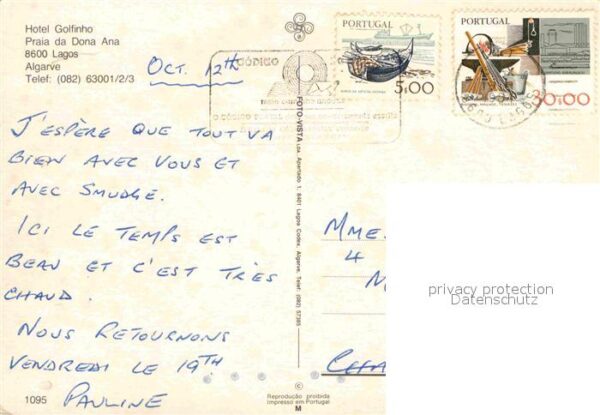 Hotel Golfinho
Praia da Dona Ana
8600 Lagos
Algarve
Telef: (082) 63001/2/3
Oct. 12th
J'espère que tout va
bien avec vous et
avec Smudge.
Ici le temps est
beau et c'est très
chaud.
Nous retournons
vendredi le 19th
Pauline
1095
FOTO-VISTA Lda. Apartado 1, 8401 Lagoa Codex, Algarve, Telef: (082) 57385
©
Reprodução proibida
Impresso em Portugal
M
CÓDIGO
PORTUGAL
5$00
PORTUGAL
30$00
Mme.
4
privacy protection
Datenschutz